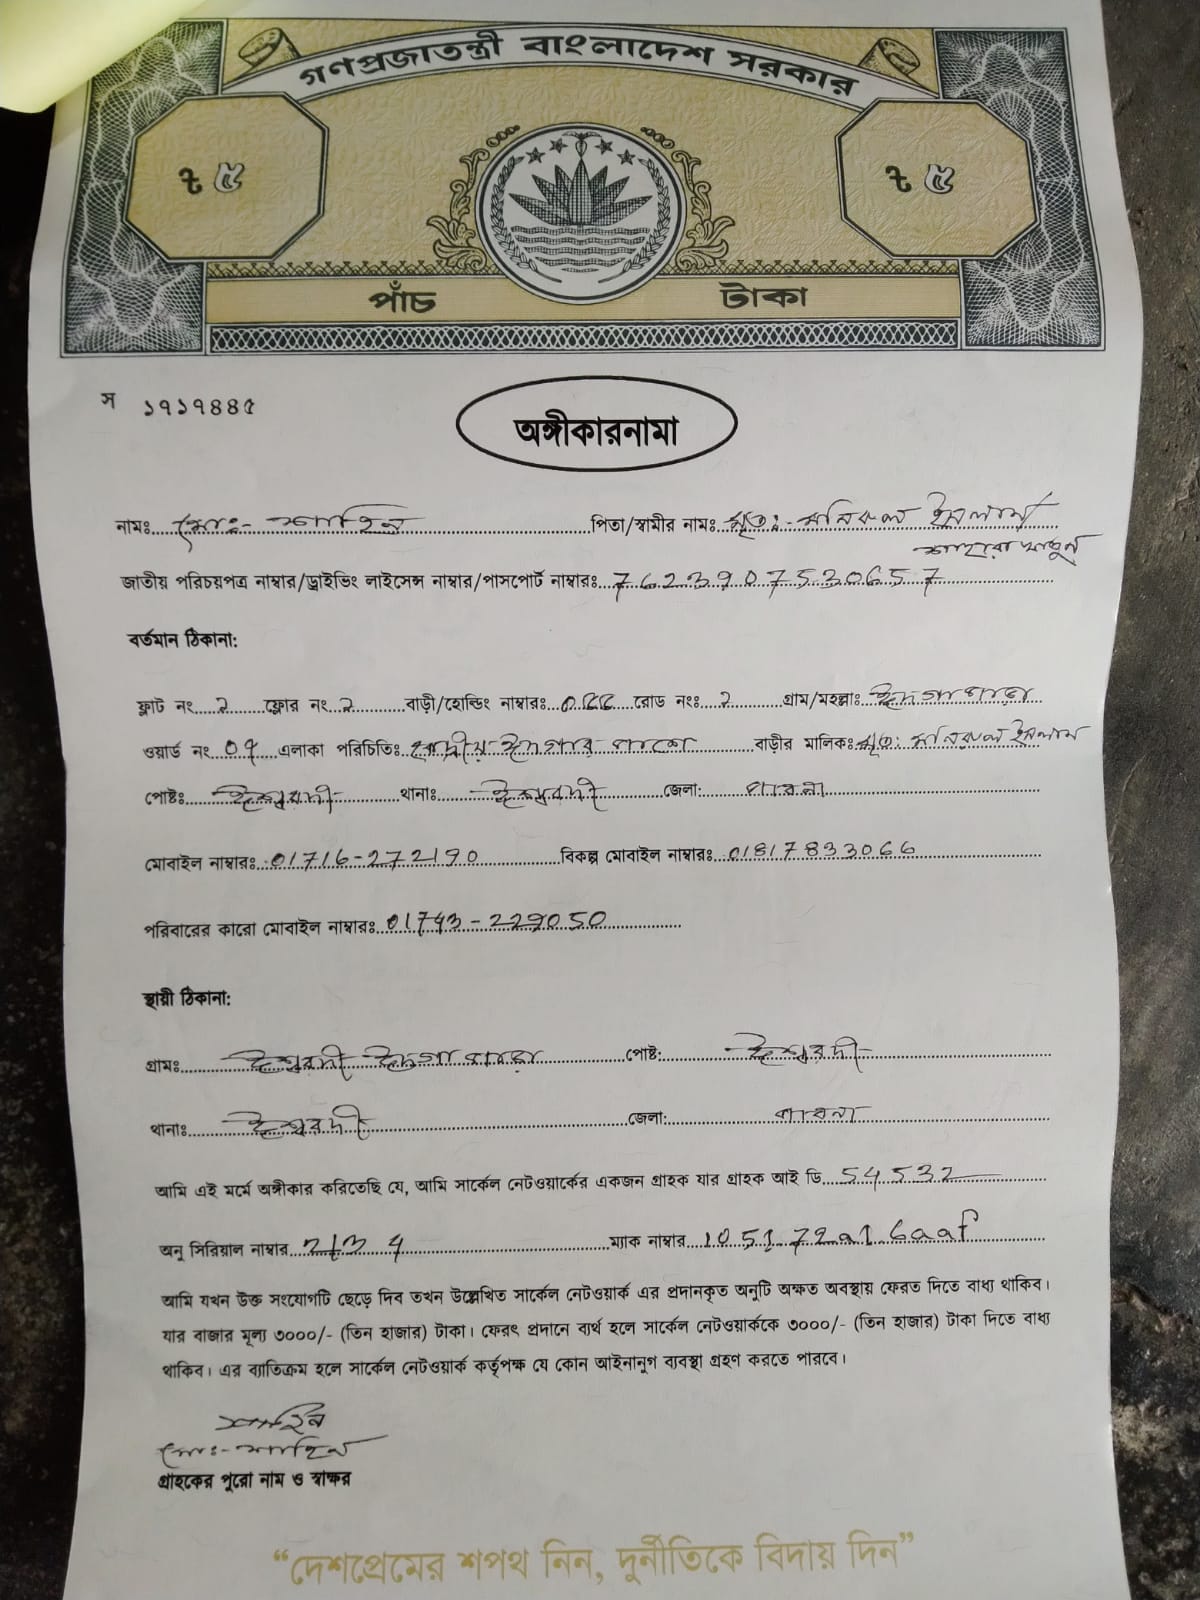 গণপ্রজাতন্ত্রী বাংলাদেশ সরকার
৳ ৫ ৳ ৫
পাঁচ টাকা
স ১৭১৭৪৪৫
অঙ্গীকারনামা
নামঃ মোঃ- শাহিন পিতা/স্বামীর নামঃ মৃতঃ- মনিরুল ইসলাম
জাতীয় পরিচয়পত্র নাম্বার/ড্রাইভিং লাইসেন্স নাম্বার/পাসপোর্ট নাম্বারঃ 7623907530657
বর্তমান ঠিকানা:
ফ্লাট নং 2 ফ্লোর নং 2 বাড়ী/হোল্ডিং নাম্বারঃ রোড নংঃ 2 গ্রাম/মহল্লাঃ ঈদগাপাড়া
ওয়ার্ড নং 07 এলাকা পরিচিতিঃ বাড়ীর মালিকঃ মৃতঃ মনিরুল ইসলাম
পোষ্টঃ ঈশ্বরদী থানাঃ ঈশ্বরদী জেলা: পাবনা
মোবাইল নাম্বারঃ 01716-272190 বিকল্প মোবাইল নাম্বারঃ 01817833066
পরিবারের কারো মোবাইল নাম্বারঃ 01743-229050
স্থায়ী ঠিকানা:
গ্রামঃ ঈশ্বরদী ঈদগাপাড়া পোষ্ট: ঈশ্বরদী
থানাঃ ঈশ্বরদী জেলা: পাবনা
আমি এই মর্মে অঙ্গীকার করিতেছি যে, আমি সার্কেল নেটওয়ার্কের একজন গ্রাহক যার গ্রাহক আই ডি 54532
অনু সিরিয়াল নাম্বার ম্যাক নাম্বার 105172a16aaf
আমি যখন উক্ত সংযোগটি ছেড়ে দিব তখন উল্লেখিত সার্কেল নেটওয়ার্ক এর প্রদানকৃত অনুটি অক্ষত অবস্থায় ফেরত দিতে বাধ্য থাকিব।
যার বাজার মূল্য ৩০০০/- (তিন হাজার) টাকা। ফেরৎ প্রদানে ব্যর্থ হলে সার্কেল নেটওয়ার্ককে ৩০০০/- (তিন হাজার) টাকা দিতে বাধ্য
থাকিব। এর ব্যাতিক্রম হলে সার্কেল নেটওয়ার্ক কর্তৃপক্ষ যে কোন আইনানুগ ব্যবস্থা গ্রহণ করতে পারবে।
শাহিন
মোঃ- শাহিন
গ্রাহকের পুরো নাম ও স্বাক্ষর
“দেশপ্রেমের শপথ নিন, দুর্নীতিকে বিদায় দিন”